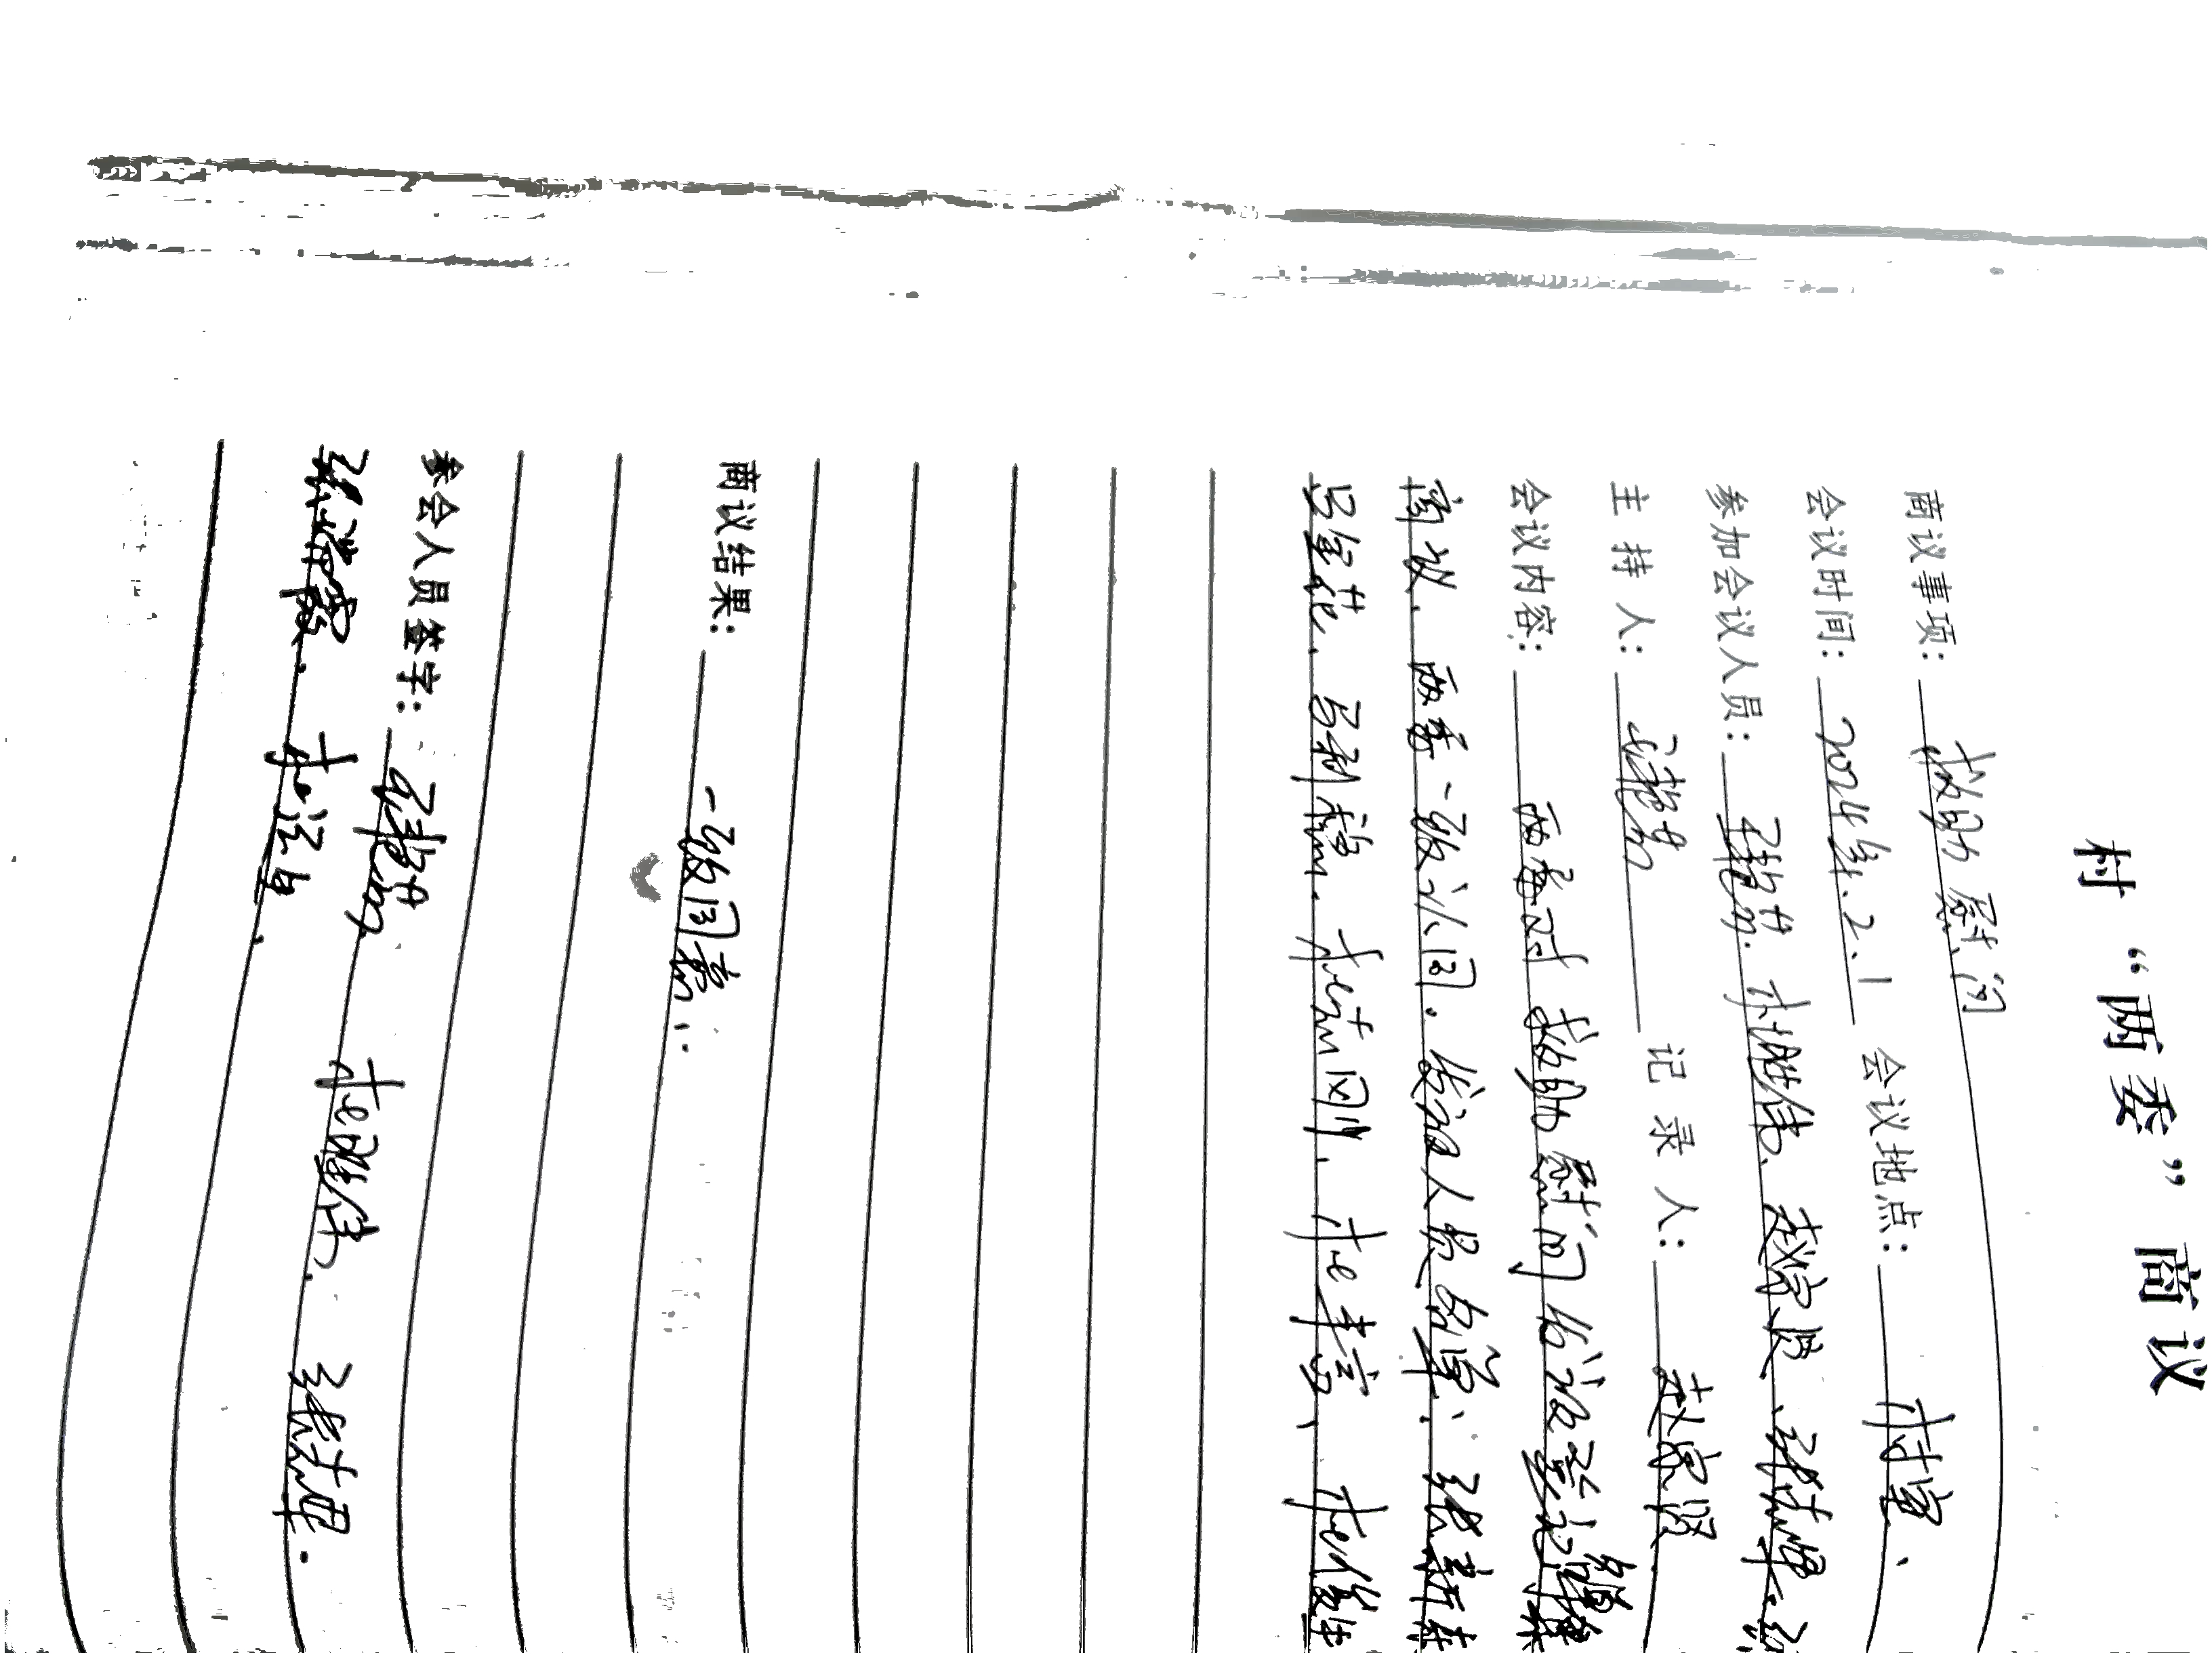 村“两委”商议
商议事项: 救助慰问
会议时间: 2024年.2.1 会议地点: 村室、
参加会议人员: 王艳茹、杜胜伟、赵宗贤、张志军、张
主持人: 王艳茹 记录人: 赵宗贤
会议内容: 两委对救助慰问发放登记名单集
商议、两委一致认同。发放人员名单: 张新东
吕金花、马利稳、杜志刚、杜丰富、杜俊生
商议结果: 一致同意、
参会人员签字: 王艳茹 杜胜伟、张志军.
张瑞霞、杜运生、